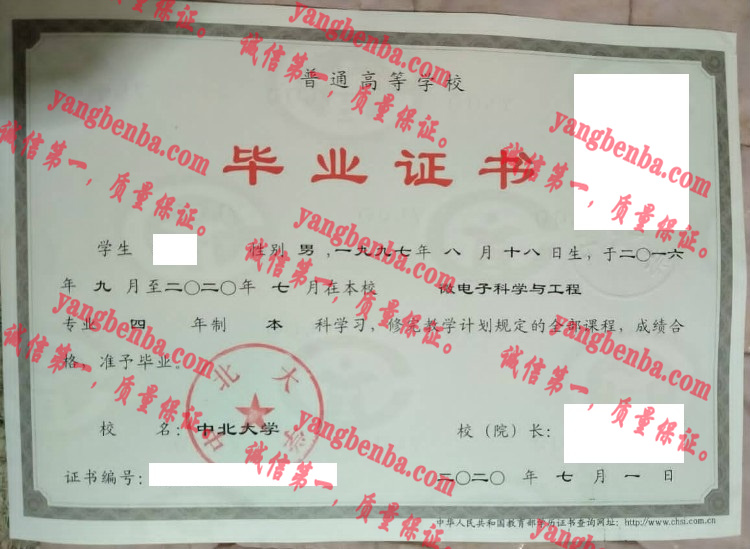 普通高等学校
毕业证书
学生 性别 男,一九九七年 八 月 十八日生,于二〇一六
年 九 月至二〇二〇年 七 月在本校 微电子科学与工程
专业 四 年制 本 科学习,修完教学计划规定的全部课程,成绩合
格,准予毕业。
中北大学
校 名:中北大学 校(院)长:
证书编号: 二〇二〇 年 七 月 一 日
中华人民共和国教育部学历证书查询网址:http://www.chsi.com.cn
yangbenba.com
诚信第一,质量保证。
yangbenba.com
诚信第一,质量保证。
yangbenba.com
诚信第一,质量保证。
yangbenba.com
诚信第一,质量保证。
yangbenba.com
诚信第一,质量保证。
yangbenba.com
诚信第一,质量保证。
yangbenba.com
诚信第一,质量保证。
yangbenba.com
诚信第一,质量保证。
yangbenba.com
诚信第一,质量保证。